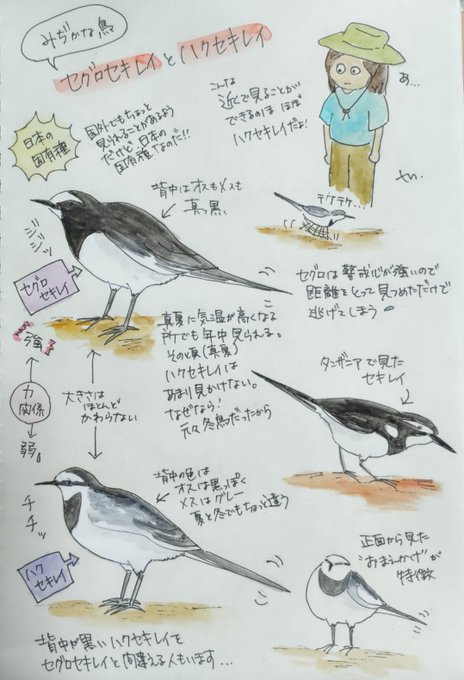 みぢかな鳥
セグロセキレイとハクセキレイ
日本の
固有種
国外でもちょっと
見られることがあるよう
だけど日本の
固有種なのだ!!
こんな
近くで見ることが
できるのはほぼ
ハクセキレイだよ!
あ…
テケテケ…
背中はオスもメスも
真っ黒
ジジッ
セグロ
セキレイ
セグロは警戒心が強いので
距離をとって見つめただけで
逃げてしまう
強
力
関係
弱
大きさは
ほとんど
かわらない
真夏に気温が高くなる
所でも年中見られる。
その頃(真夏)
ハクセキレイは
あまり見かけない。
なぜなら!
元々冬鳥だったから
タンザニアで見た
セキレイ
背中の色は
オスは黒っぽく
メスはグレー
夏と冬でもちょっと違う
チチッ
ハク
セキレイ
正面から見た
"おまえかけ"が
特徴
背中が黒いハクセキレイを
セグロセキレイと間違える人もいます…